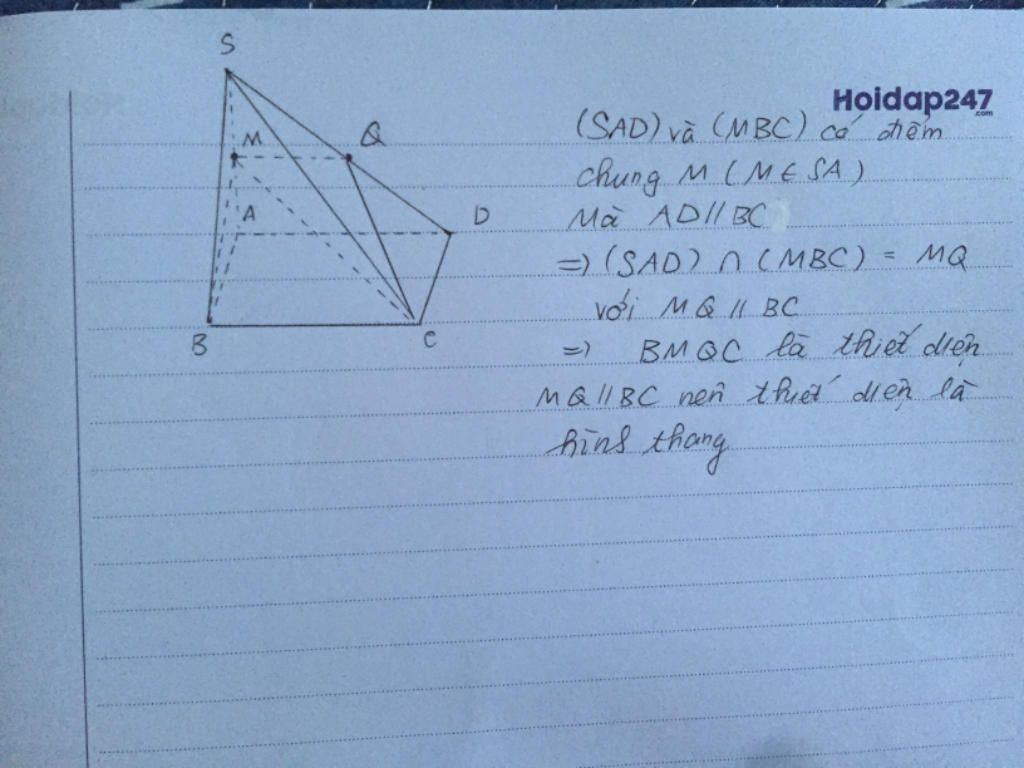 S
M
Q
A
D
B
C
Hoidap247
.com
(SAD) và (MBC) có điểm
chung M (M ∈ SA)
Mà AD // BC
=> (SAD) ∩ (MBC) = MQ
với MQ // BC
=> BMQC là thiết diện
MQ // BC nên thiết diện là
hình thang